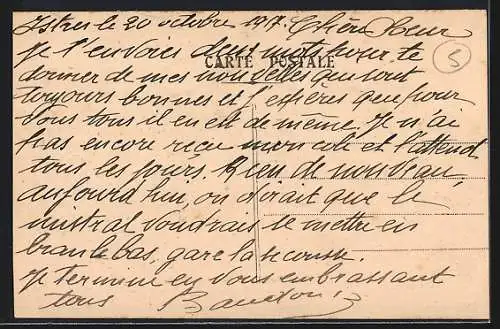 Istres le 20 octobre 191 . Chère Sœur
Je t'envoies deux mots pour te
CARTE POSTALE
donner de mes nouvelles qui sont
toujours bonnes et j'espères que pour
vous tous il en est de même. Je n'ai
pas encore reçu mon colé et l'attend
tous les jours. Rien de nouveau
aujourd'hui, on dirait que le
mistral voudrais se mettre en
branle bas, gare la secousse.
Je termine en vous embrassant
tous
5